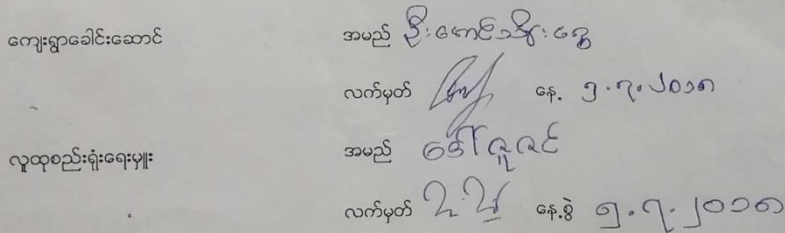 ကျေးရွာခေါင်းဆောင် အမည် ဦးမောင်သိုးရွှေ
လက်မှတ် နေ့ ၅.၇.၂၀၁၈
လူထုစည်းရုံးရေးမှူး အမည် ဒေါ်ဇူဇင်
လက်မှတ် နေ့စွဲ ၅.၇.၂၀၁၈